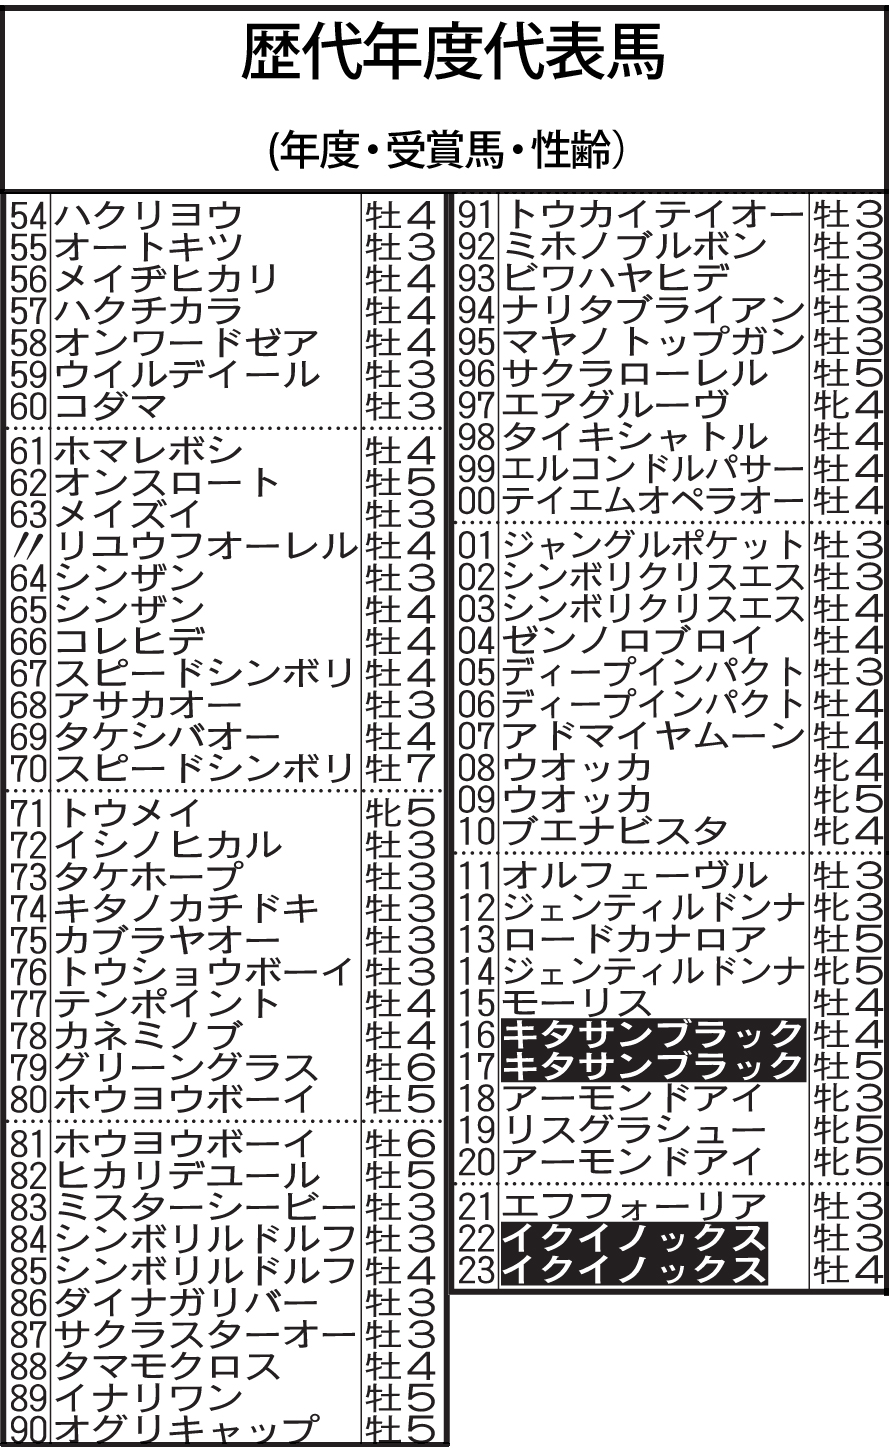 歴代年度代表馬
(年度・受賞馬・性齢)
54 ハクリヨウ 牡4
55 オートキツ 牡3
56 メイヂヒカリ 牡4
57 ハクチカラ 牡4
58 オンワードゼア 牡4
59 ウイルデイール 牡3
60 コダマ 牡3
61 ホマレボシ 牡4
62 オンスロート 牡5
63 メイズイ 牡3
〃 リユウフオーレル 牡4
64 シンザン 牡3
65 シンザン 牡4
66 コレヒデ 牡4
67 スピードシンボリ 牡4
68 アサカオー 牡3
69 タケシバオー 牡4
70 スピードシンボリ 牡7
71 トウメイ 牝5
72 イシノヒカル 牡3
73 タケホープ 牡3
74 キタノカチドキ 牡3
75 カブラヤオー 牡3
76 トウショウボーイ 牡3
77 テンポイント 牡4
78 カネミノブ 牡4
79 グリーングラス 牡6
80 ホウヨウボーイ 牡5
81 ホウヨウボーイ 牡6
82 ヒカリデユール 牡5
83 ミスターシービー 牡3
84 シンボリルドルフ 牡3
85 シンボリルドルフ 牡4
86 ダイナガリバー 牡3
87 サクラスターオー 牡3
88 タマモクロス 牡4
89 イナリワン 牡5
90 オグリキャップ 牡5
91 トウカイテイオー 牡3
92 ミホノブルボン 牡3
93 ビワハヤヒデ 牡3
94 ナリタブライアン 牡3
95 マヤノトップガン 牡3
96 サクラローレル 牡5
97 エアグルーヴ 牝4
98 タイキシャトル 牡4
99 エルコンドルパサー 牡4
00 テイエムオペラオー 牡4
01 ジャングルポケット 牡3
02 シンボリクリスエス 牡3
03 シンボリクリスエス 牡4
04 ゼンノロブロイ 牡4
05 ディープインパクト 牡3
06 ディープインパクト 牡4
07 アドマイヤムーン 牡4
08 ウオッカ 牝4
09 ウオッカ 牝5
10 ブエナビスタ 牝4
11 オルフェーヴル 牡3
12 ジェンティルドンナ 牝3
13 ロードカナロア 牡5
14 ジェンティルドンナ 牝5
15 モーリス 牡4
16 キタサンブラック 牡4
17 キタサンブラック 牡5
18 アーモンドアイ 牝3
19 リスグラシュー 牝5
20 アーモンドアイ 牝5
21 エフフォーリア 牡3
22 イクイノックス 牡3
23 イクイノックス 牡4